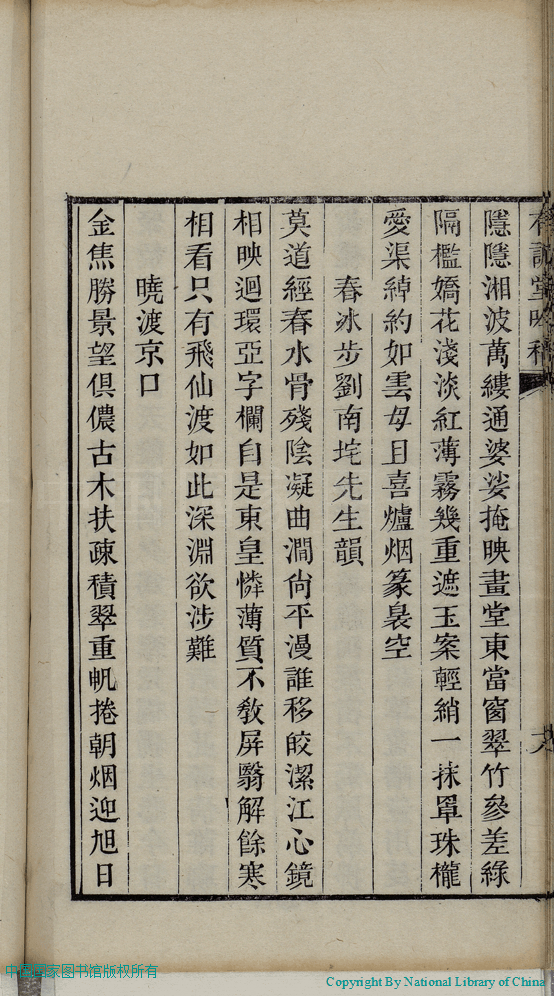 隱隱湘波萬縷通婆娑掩映畫堂東當窗翠竹參差綠
隔檻嬌花淺淡紅薄霧幾重遮玉案輕綃一抹罩珠櫳
愛渠綽約如雲母且喜爐烟篆裊空
春冰步劉南垞先生韻
莫道經春水骨殘陰凝曲澗尙平漫誰移皎潔江心鏡
相映迴環亞字欄自是東皇憐薄質不敎屏翳解餘寒
相看只有飛仙渡如此深淵欲涉難
曉渡京口
金焦勝景望俱儂古木扶疎積翠重帆捲朝烟迎旭日
中国国家图书馆版权所有
Copyright By National Library of China